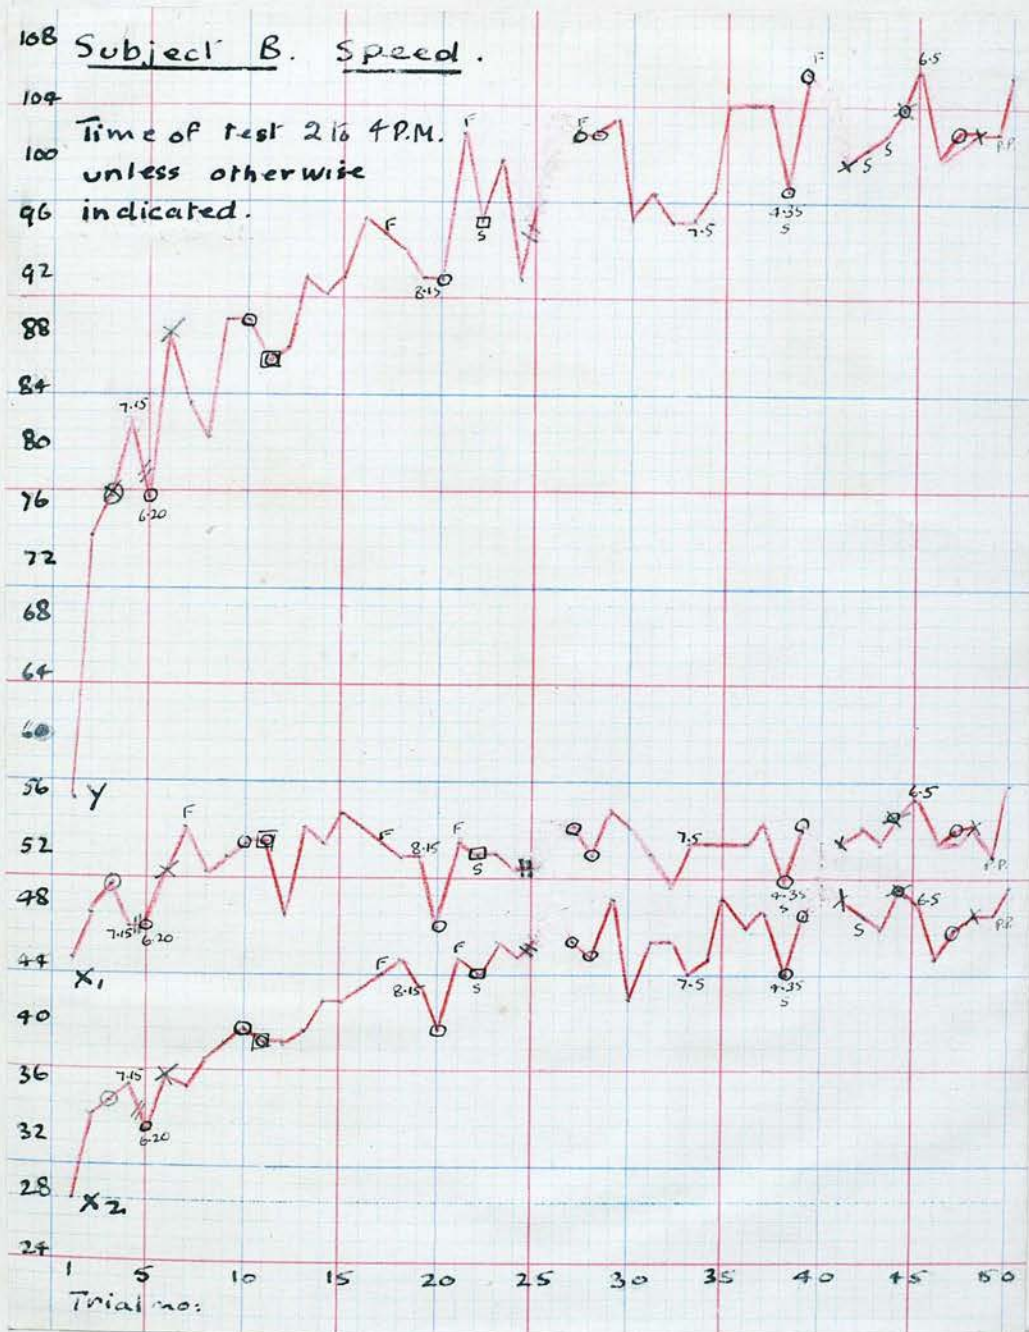 108
Subject B. Speed.
104
Time of test 2 to 4 P.M.
100
unless otherwise
96
indicated.
92
88
84
80
76
72
68
64
60
56
52
48
44
40
36
32
28
24
7.15
6.20
F
8.15
F
S
F
7.5
4.35
S
F
S
S
6.5
P.P.
Y
F
7.15
6.20
F
8.15
F
S
7.5
4.35
S
6.5
P.P.
X1
7.15
6.20
F
8.15
F
S
7.5
4.35
S
S
6.5
P.P.
X2
1 5 10 15 20 25 30 35 40 45 50
Trial no: